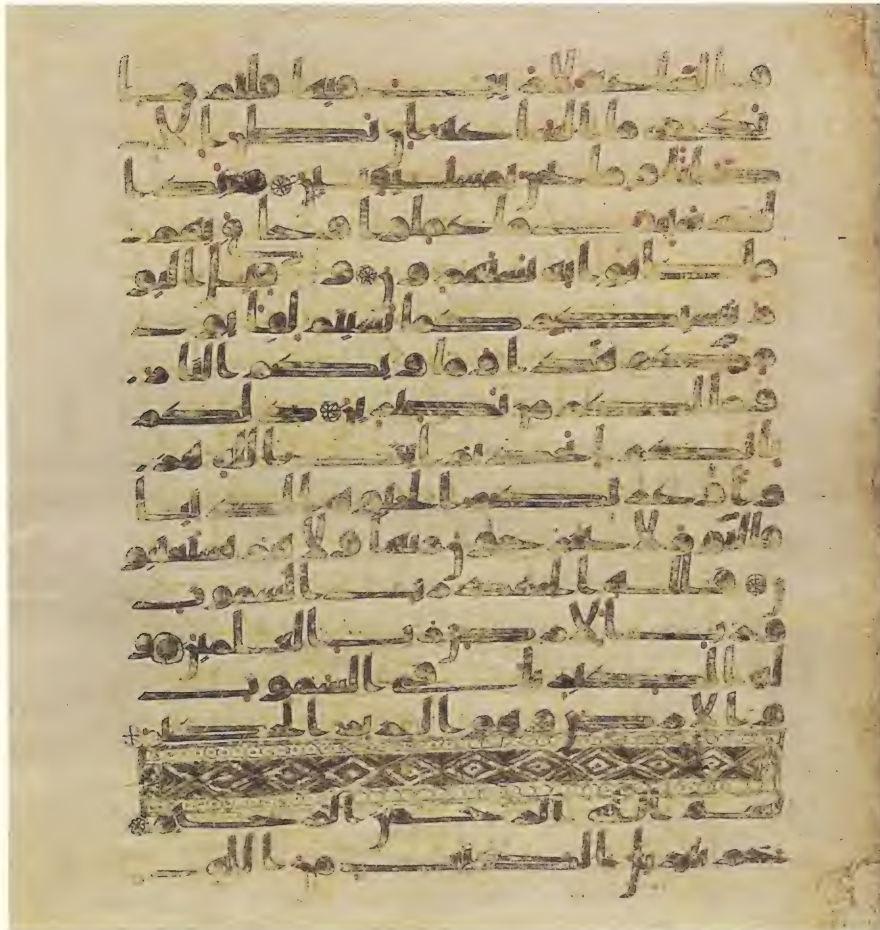 و الساعه لا ريب فيها قلتم ما
ندرى ما الساعه ان نظن الا
ظنا و ما نحن بمستيقنين و بدا
لهم سيات ما عملوا و حاق بهم
ما كانوا به يستهزون و قيل اليو
م ننسيكم كما نسيتم لقا يو
مكم هذا و ماويكم النار
و ما لكم من نصرين ذلكم
بانكم اتخذتم ايت الله هز
وا و غرتكم الحيوه الدنيا
فاليوم لا يخرجون منها و لا هم يستعتبو
ن فلله الحمد رب السموت
و رب الارض رب العلمين و
له الكبريا فى السموت
و الارض و هو العزيز الحكيم
بسم الله الرحمن الرحيم
حم تنزيل الكتب من الله